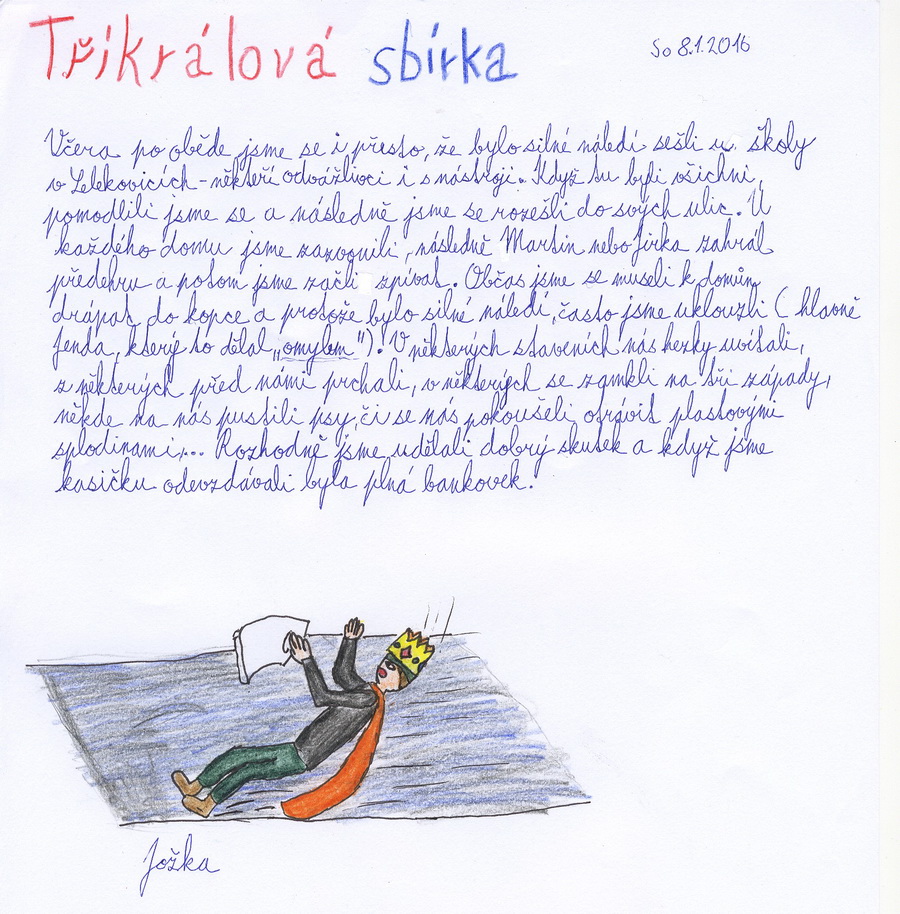 Tříkrálová sbírka
So 8.1.2016
Včera po obědě jsme se i přesto, že bylo silné náledí sešli u školy
v Lelekovicích - někteří odvážlivci i s nástroji. Když tu byli všichni,
pomodlili jsme se a následně jsme se rozešli do svých ulic. U
každého domu jsme zazvonili, následně Martin nebo Jirka zahrál
předehru a potom jsme začli zpívat. Občas jsme se museli k domům
drápat do kopce a protože bylo silné náledí, často jsme uklouzli ( hlavně
Jenda, který to dělal „omylem"). V některých staveních nás hezky uvítali,
z některých před námi prchali, v některých se zamkli na tři západy,
někde na nás pustili psy, či se nás pokoušeli otrávit plastovými
splodinami,... Rozhodně jsme udělali dobrý skutek a když jsme
kasičku odevzdávali byla plná bankovek.
Jožka